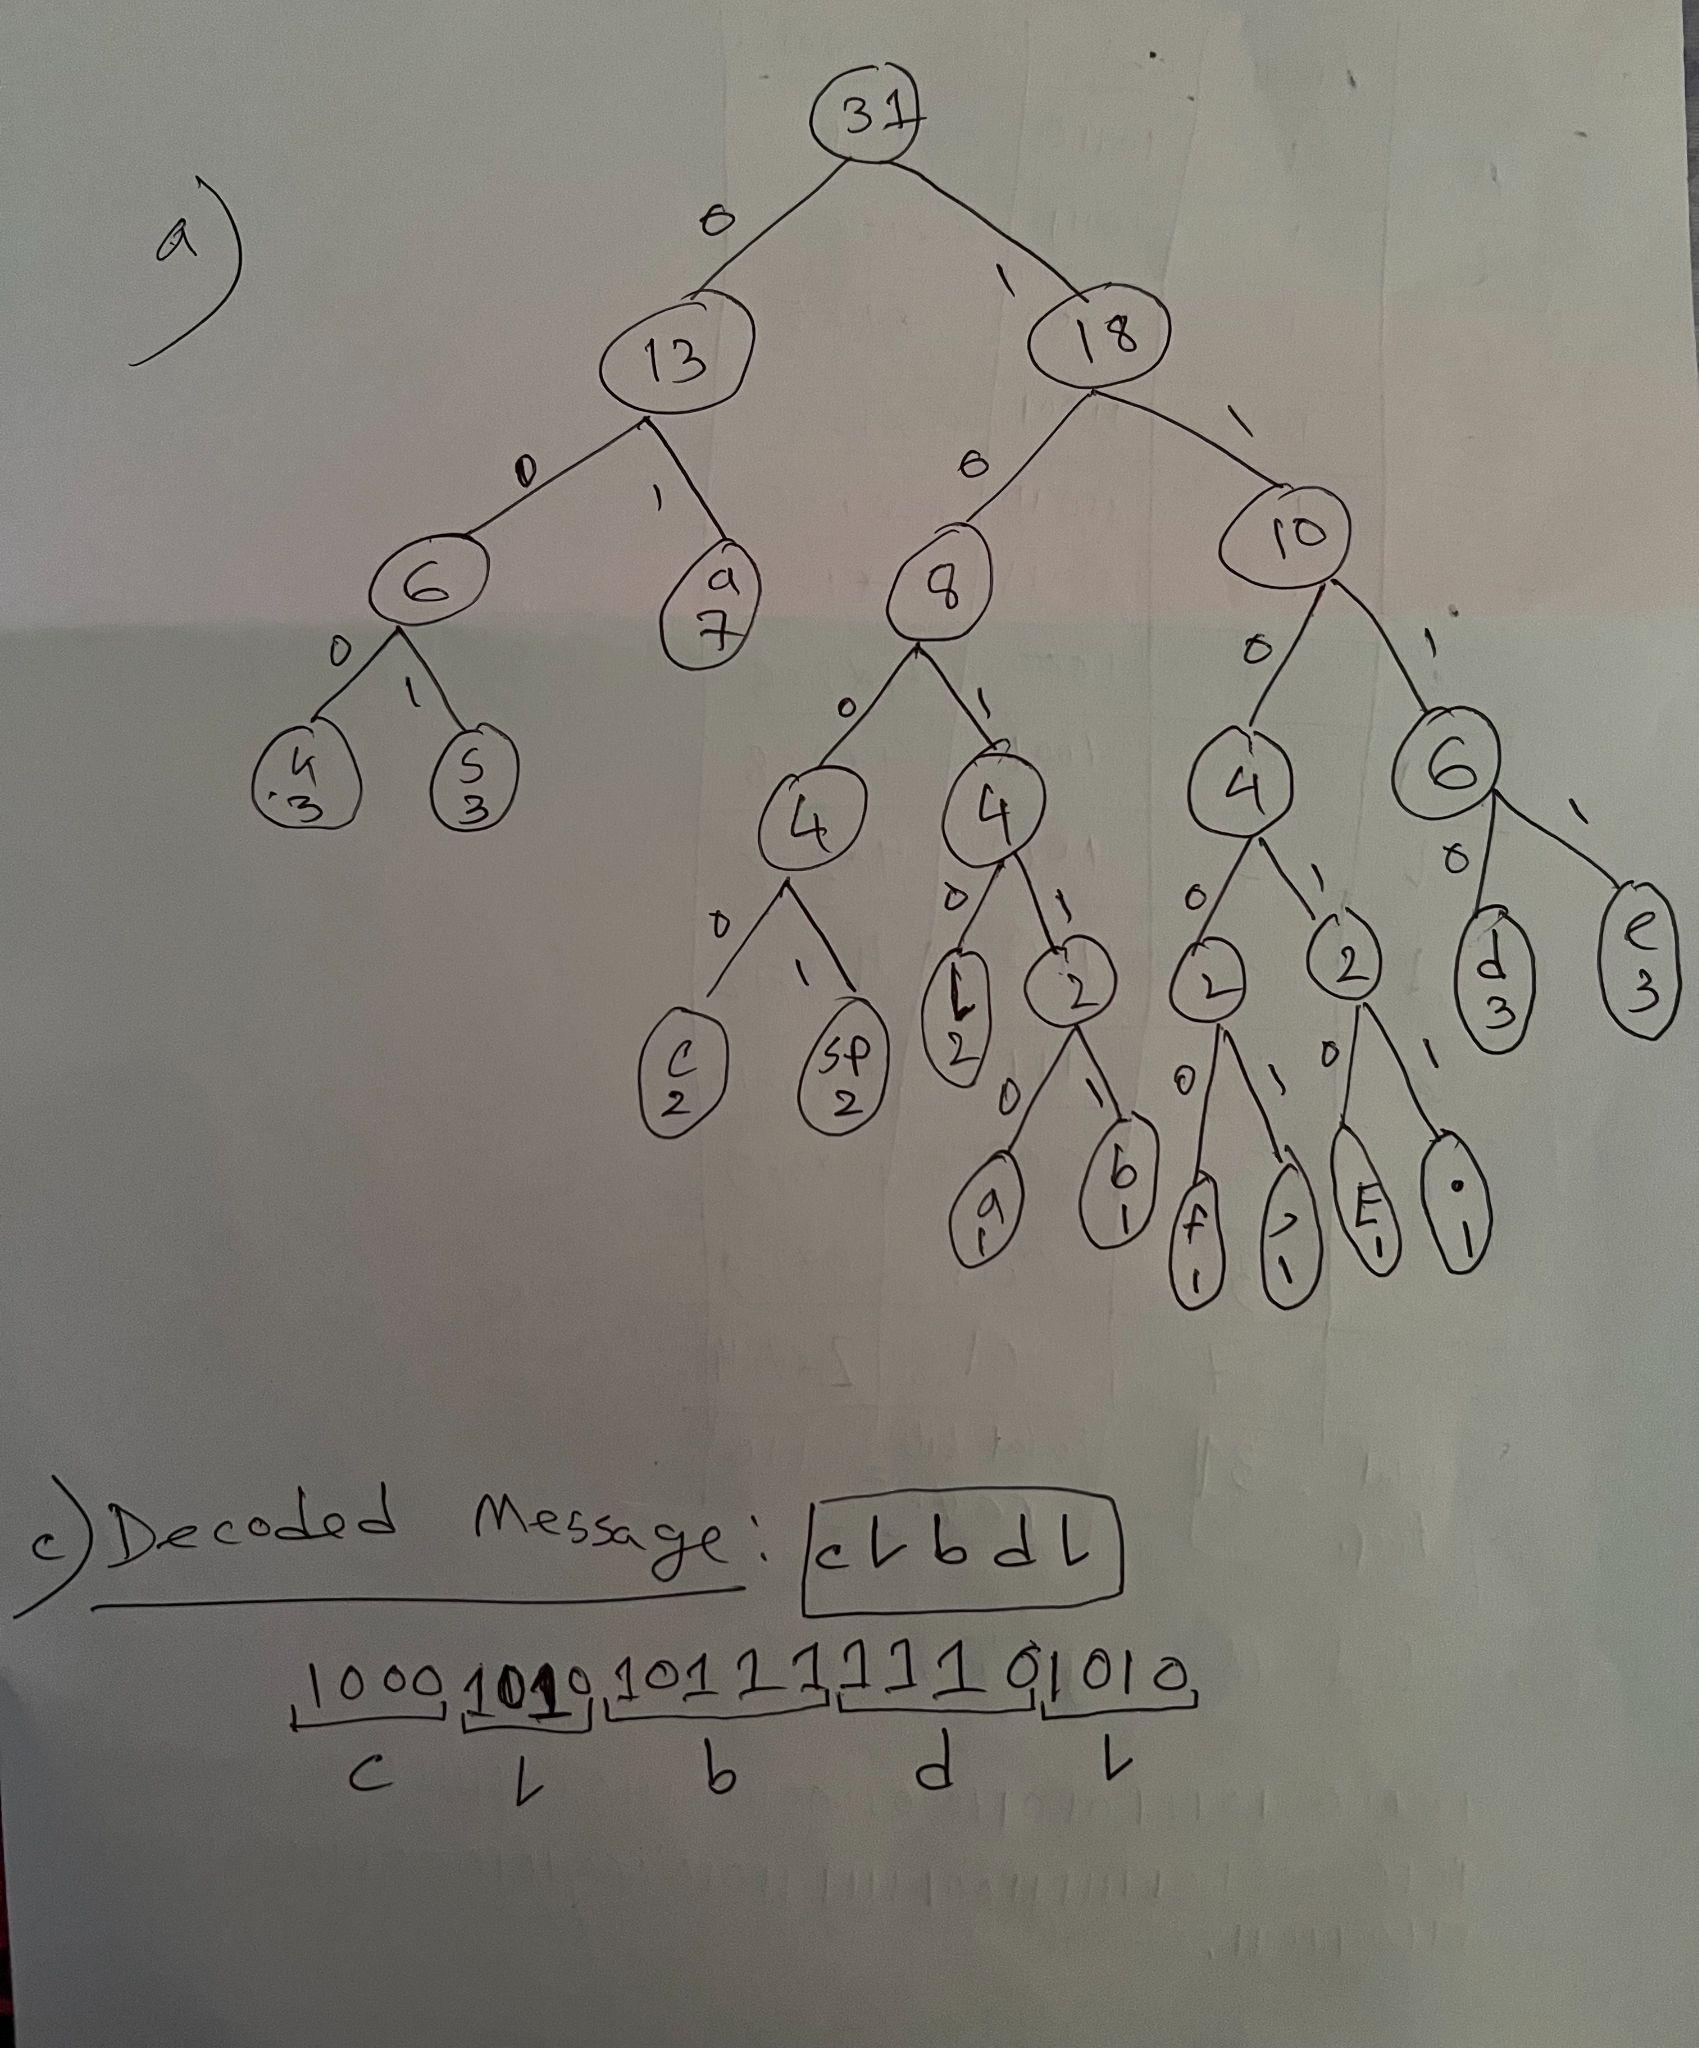 a)
31
0 1
13 18
0 1 0 1
6 a 7 8 10
0 1 0 1 0 1
3 S 3 4 4 4 6
0 1 0 1 0 1 0 1
C 2 SP 2 L 2 2 2 2 d 3 e 3
0 1 0 1 0 1
a 1 b 1 f 1 1 E 1 . 1
c) Decoded Message: c l b d l
1000 1010 10111 1110 1010
c l b d l